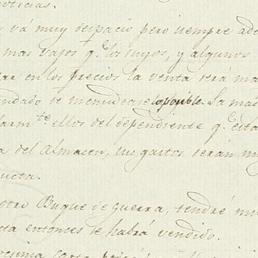 oticias.
vá muy despacio, pero siempre ade
mas vajos qe. los suyos, y algunos
en los precios la venta sera ma
de menudear lo posible. La mad
ellos del dependiente qe. esta
a del Almacen, los gastos serán m
ucta.
otro Buque de Guerra, tendré m
ta entonces se habrá vendido.